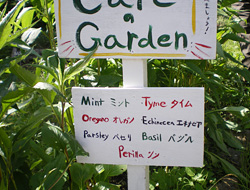 Cafe
Garden
Mint ミント
Tyme タイム
Oregano オレガノ
Echinacea エキナセア
Parsley パセリ
Basil バジル
Perilla シソ